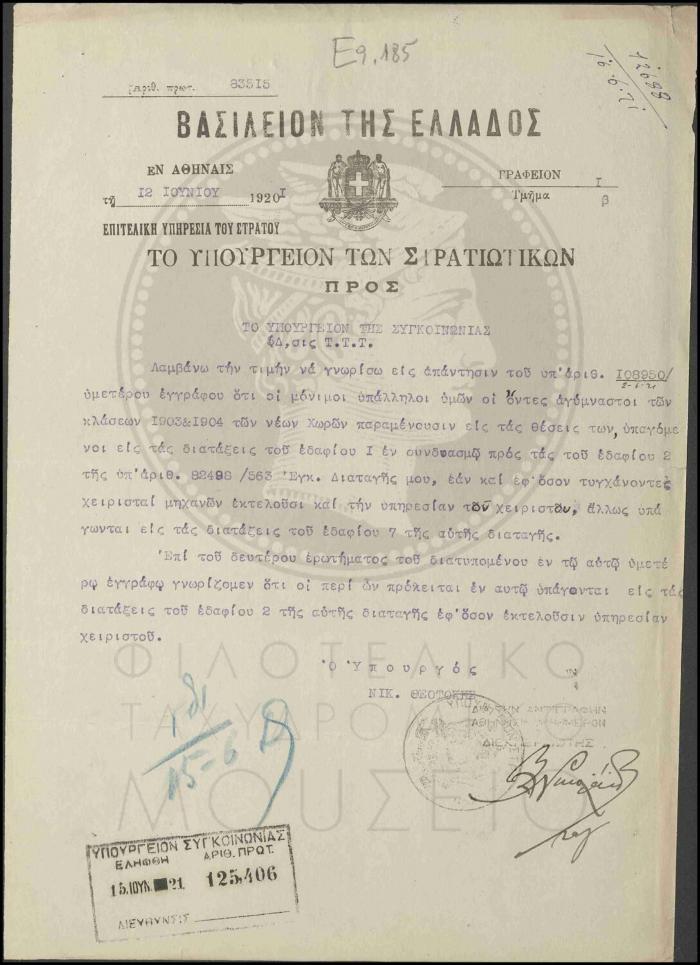 Εg.185
12688
16.6.21
Ἀριθ. πρωτ. 83515
ΒΑΣΙΛΕΙΟΝ ΤΗΣ ΕΛΛΑΔΟΣ
ΕΝ ΑΘΗΝΑΙΣ
τῇ 12 ΙΟΥΝΙΟΥ 1920Ι
ΓΡΑΦΕΙΟΝ Ι
Τμῆμα β
ΕΠΙΤΕΛΙΚΗ ΥΠΗΡΕΣΙΑ ΤΟΥ ΣΤΡΑΤΟΥ
ΤΟ ΥΠΟΥΡΓΕΙΟΝ ΤΩΝ ΣΤΡΑΤΙΩΤΙΚΩΝ
ΠΡΟΣ
ΤΟ ΥΠΟΥΡΓΕΙΟΝ ΤΗΣ ΣΥΓΚΟΙΝΩΝΙΑΣ
Δ,σις Τ.Τ.Τ.
Λαμβάνω τήν τιμήν νά γνωρίσω είς απάντησιν τοῦ ὑπ'άριθ. Ι08950/
2-6-21
ὑμετέρου ἐγγράφου ὅτι οἱ μόνιμοι ὑπάλληλοι ὑμῶν οἱ ὄντες ἀγύμναστοι τῶν
κλάσεων Ι903&Ι904 τῶν νέων Χωρῶν παραμένουσιν εἰς τάς θέσεις των, ὑπαγόμε
νοι εἰς τάς διατάξεις τοῦ ἐδαφίου Ι ἐν συνδυασμῷ πρός τάς τοῦ ἐδαφίου 2
τῆς ὑπ'ἀριθ. 82498 /563 Ἐγκ. Διαταγῆς μου, ἐάν καί ἐφ'ὅσον τυγχάνοντες
χειρισταί μηχανῶν ἐκτελοῦσι καί τήν ὑπηρεσίαν τοῦ χειριστοῦ, ἄλλως ὑπά
γωνται εἰς τάς διατάξεις τοῦ ἐδαφίου 7 τῆς αὐτῆς διαταγῆς.
Ἐπί τοῦ δευτέρου ἐρωτήματος τοῦ διατυπομένου ἐν τῷ αὐτῷ ὑμετέ
ρῳ ἐγγράφῳ γνωρίζομεν ὅτι οἱ περί ὧν πρόκειται ἐν αὐτῷ ὑπάγονται εἰς τάς
διατάξεις τοῦ ἐδαφίου 2 τῆς αὐτῆς διαταγῆς ἐφ'ὅσον ἐκτελοῦσιν ὑπηρεσίαν
χειριστοῦ.
Ὁ Ὑπουργός
ΝΙΚ. ΘΕΟΤΟΚΗΣ
ΑΚΡΙΒΕΣ ΑΝΤΙΓΡΑΦΟΝ
ΑΘΗΝΑΙ
ΦΙΛΟΤΕΛΙΚΟ
ΤΑΧΥΔΡΟΜΙΚΟ
ΜΟΥΣΕΙΟ
15-6
ΥΠΟΥΡΓΕΙΟΝ ΣΥΓΚΟΙΝΩΝΙΑΣ
ΕΛΗΦΘΗ ΑΡΙΘ. ΠΡΩΤ.
15.ΙΟΥΝ. 21 125,406
ΔΙΕΥΘΥΝΣΙΣ